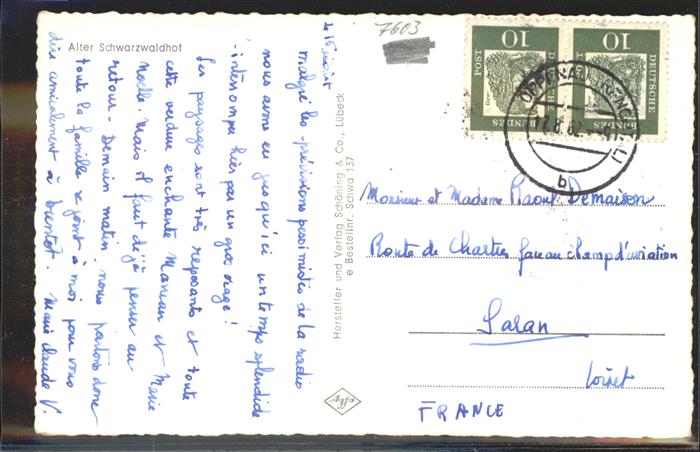 7603
Alter Schwarzwaldhof
le 16 août
malgré les prévisions pessimistes de la radio
nous avons eu jusqu'ici un temps splendide
interrompu hier par un gros orage!
Les paysages sont très reposants et toute
cette verdure enchante Maman et Marie
Noëlle. Mais il faut déjà penser au
retour - Demain matin, nous partons donc
toute la famille se joint à moi pour vous
dire amicalement à bientôt. Marie Claude V.
Hersteller und Verlag Schöning & Co., Lübeck
Bestellnr. Schwa 137
10
POST
DEUTSCHE
BUNDES
10
POST
DEUTSCHE
BUNDES
b
Monsieur et Madame Raoul Demaison
Route de Chartres face au champ d'aviation
Saran
Loiret
FRANCE